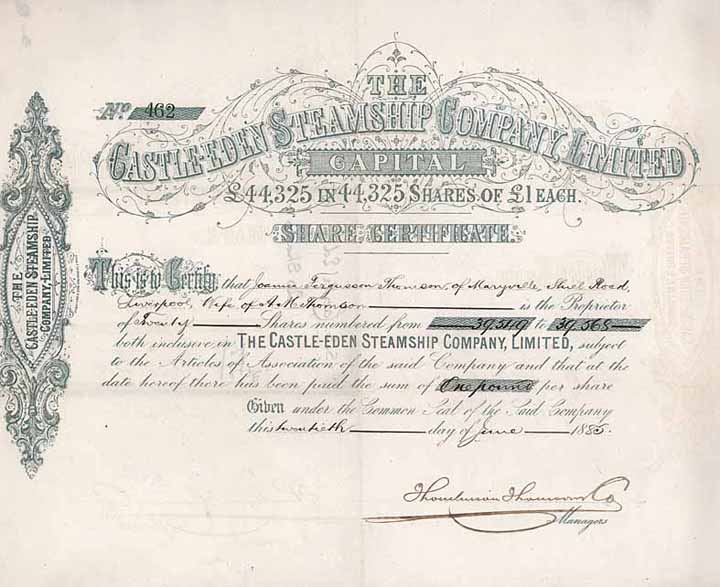 No. 462
THE
CASTLE-EDEN STEAMSHIP COMPANY, LIMITED
CAPITAL
£44,325 IN 44,325 SHARES OF £1 EACH.
SHARE CERTIFICATE.
This is to Certify that Joanna Fergusson Thomson, of Maryville, Road,
Liverpool, Wife of A. M. Thomson is the Proprietor
of Twenty Shares numbered from 39,549 to 39,568
both inclusive in THE CASTLE-EDEN STEAMSHIP COMPANY, LIMITED, subject
to the Articles of Association of the said Company and that at the
date hereof there has been paid the sum of One pound per share
Given under the Common Seal of the said Company
this twentieth day of June 1885.
Thomson & Co
Managers
THE
CASTLE-EDEN STEAMSHIP
COMPANY, LIMITED